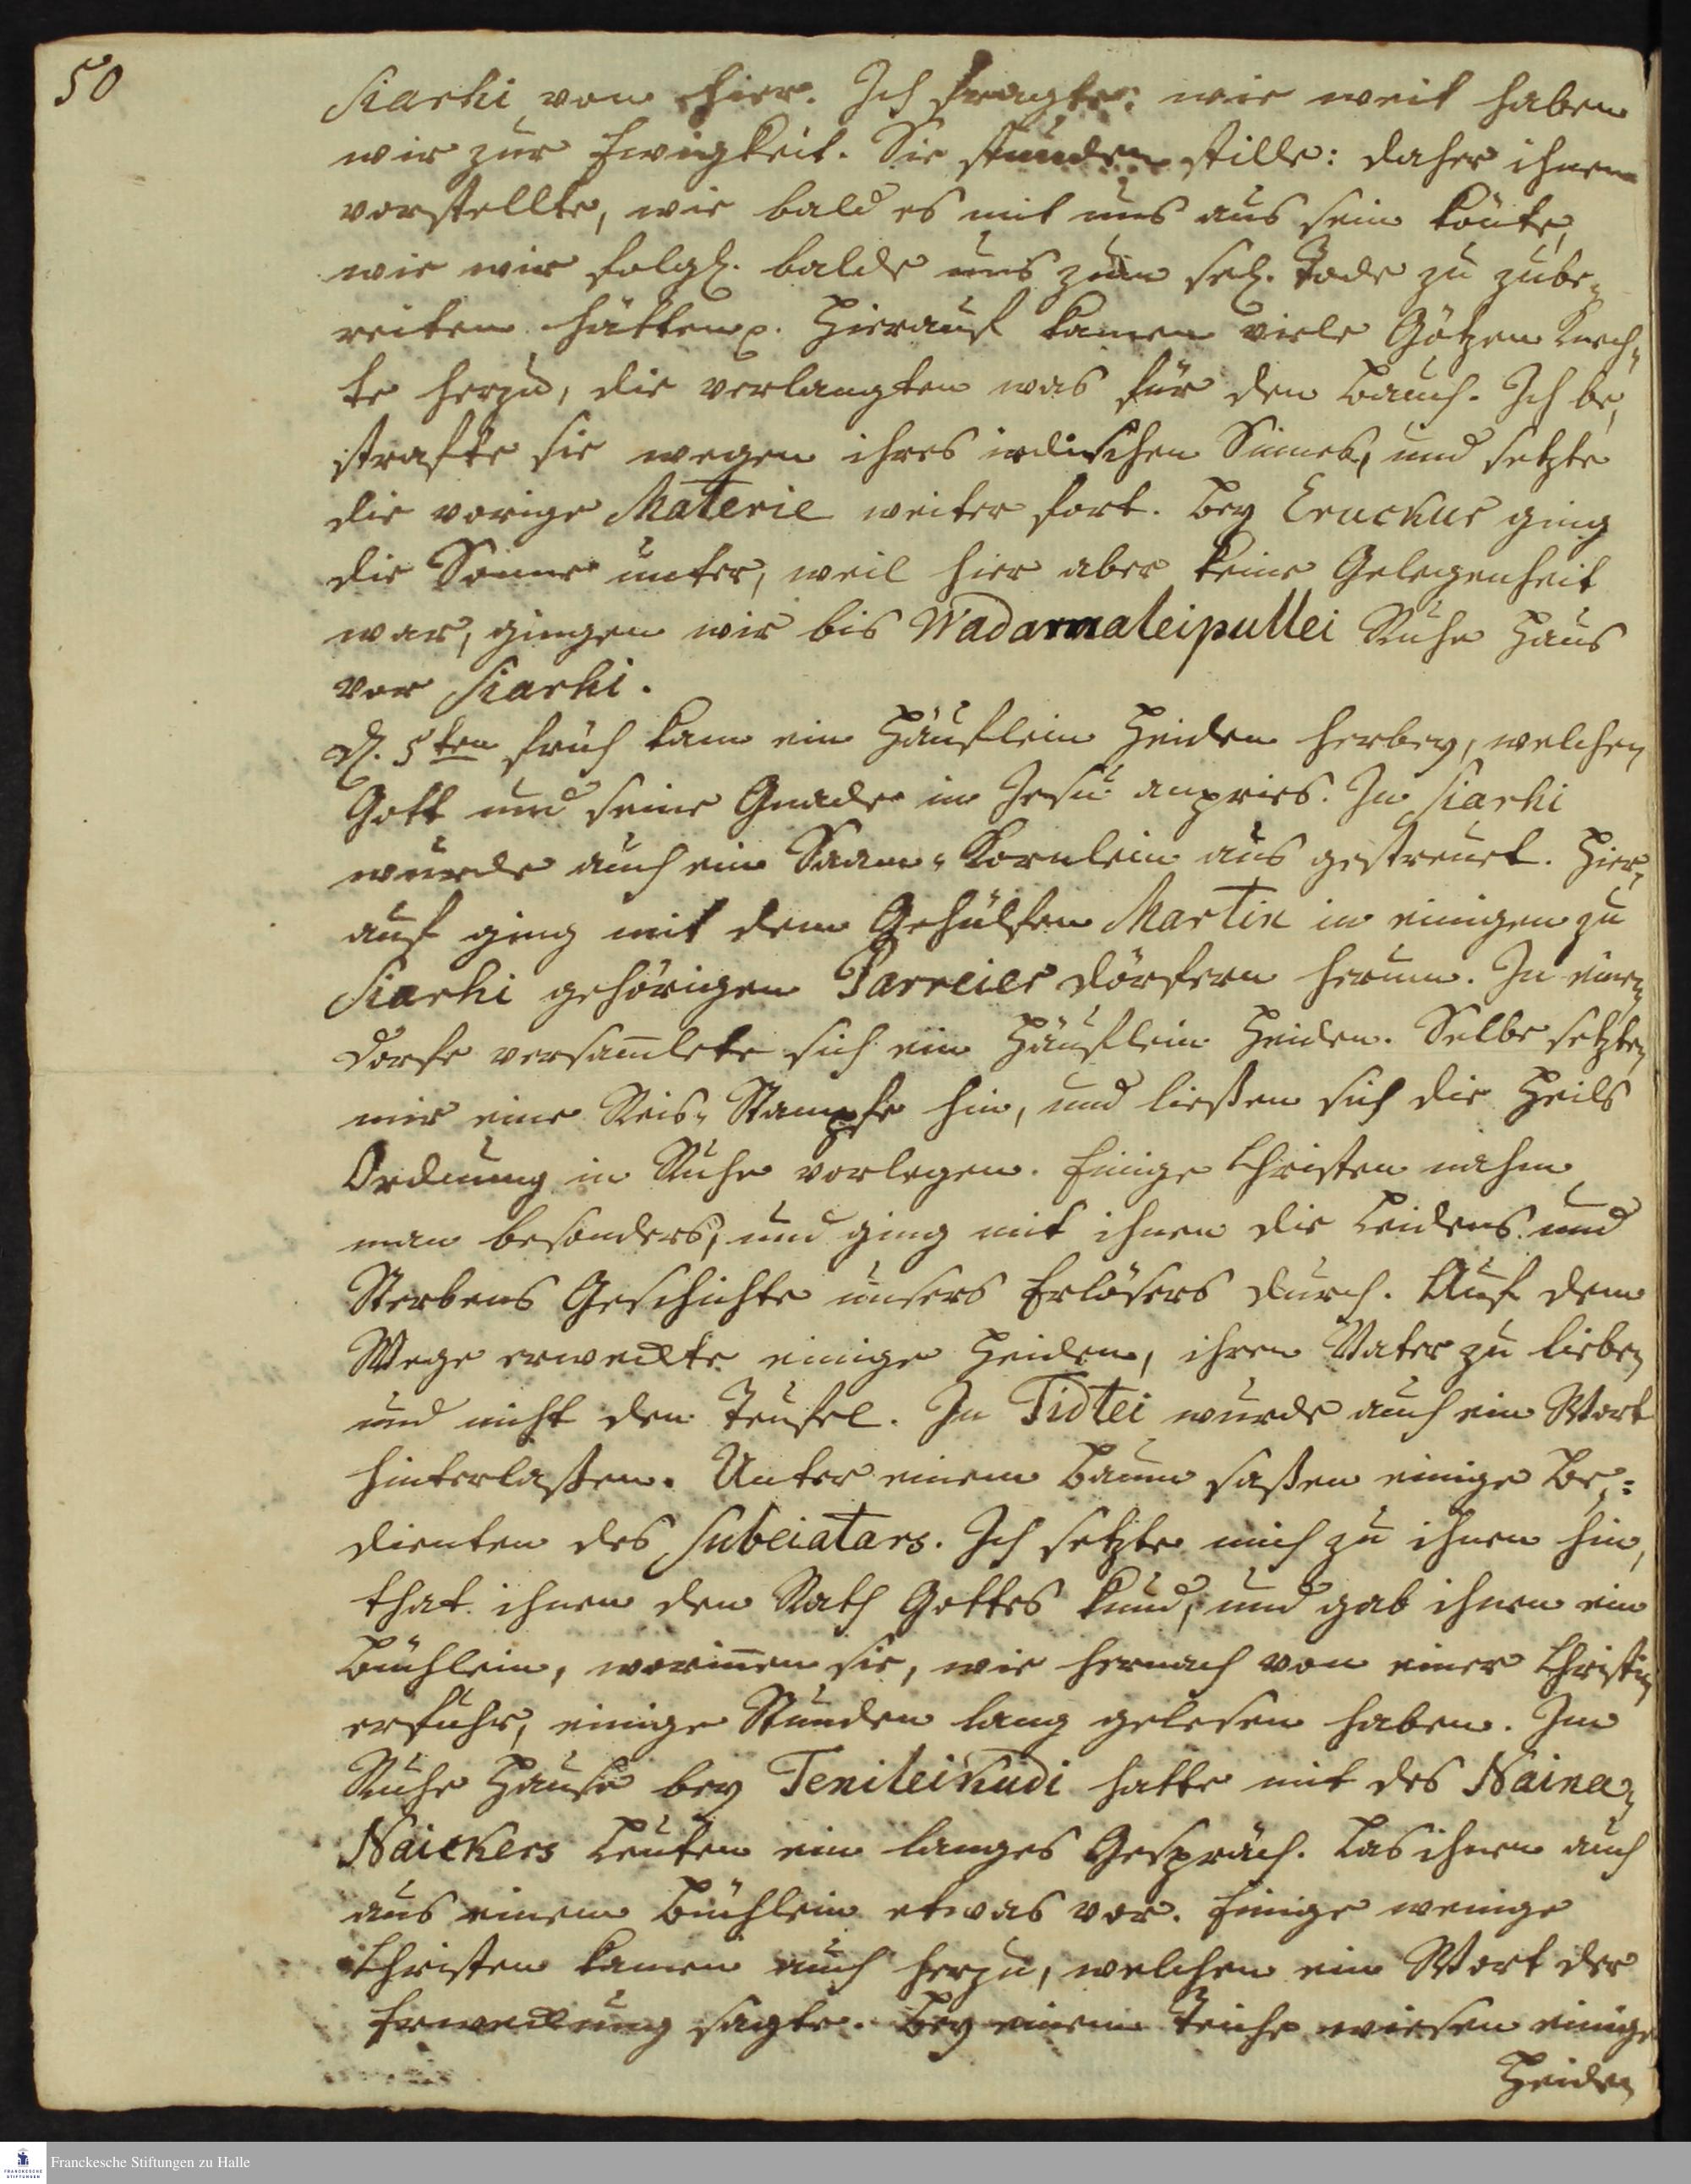 50
Siarhi von hier. Ich fragte: wie weit haben
wir zur Ewigkeit. Sie stunden stille: daher ihnen
vorstellte, wie bald es mit uns aus sein könte,
wie wir folgl. balde uns zum sel. Tode zu zube-
reiten hätten p. Hierauf kamen viele Götzen Knech-
te herzu, die verlangten was für den Bauch. Ich be-
strafte sie wegen ihres irdischen Sinnes, und setzte
die vorige Materie weiter fort. Bey Eruckur ging
die Sonne unter, weil hier aber keine Gelegenheit
war, gingen wir bis Wadarmaleipullei Ruhe Haus
vor Siarhi.
D. 5ten früh kam ein Häuflein Heiden herbey, welchen
Gott und seine Gnade in Jesu anpries. In Siarhi
wurde auch ein Saam-Kornlein aus gestreuet. Hier-
auf ging mit dem Gehülfen Martin in einigen zu
Siarhi gehörigen Parreier dörfern herum. In einen
Dorfe versam̅lete sich ein Häuflein Heiden. Selbe setzten
mir eine Reis-Stampfe hin, und ließen sich die Heils
Ordnung in Ruhe vorlegen. Einige Christen nahm
man besonders, und ging mit ihnen die Leidens und
Sterbens Geschichte unsers Erlösers durch. Auf dem
Wege erweckte einige Heiden, ihren Vater zu lieben
und nicht den Teufel. In Tidlei wurde auch ein Wort
hinterlaßen. Unter einem Baum saßen einige Be-
dienten des Subeiatars. Ich setzte mich zu ihnen hin,
that ihnen den Rath Gottes kund, und gab ihnen ein
Büchlein, worinnen sie, wie hernach von einer Christin
erfuhr, einige Stunden lang gelesen haben. Im
Ruhe Hause bey Tenileikudi hatte mit des Naina-
Naickers Leuten ein langes Gespräch. Las ihnen auch
aus einem Büchlein etwas vor. Einige wenige
Christen kamen auch herzu, welchen ein Wort der
Erweckung sagte. Bey einem Teiche wiesen einige
Heiden
FRANCKESCHE STIFTUNGEN
Franckesche Stiftungen zu Halle